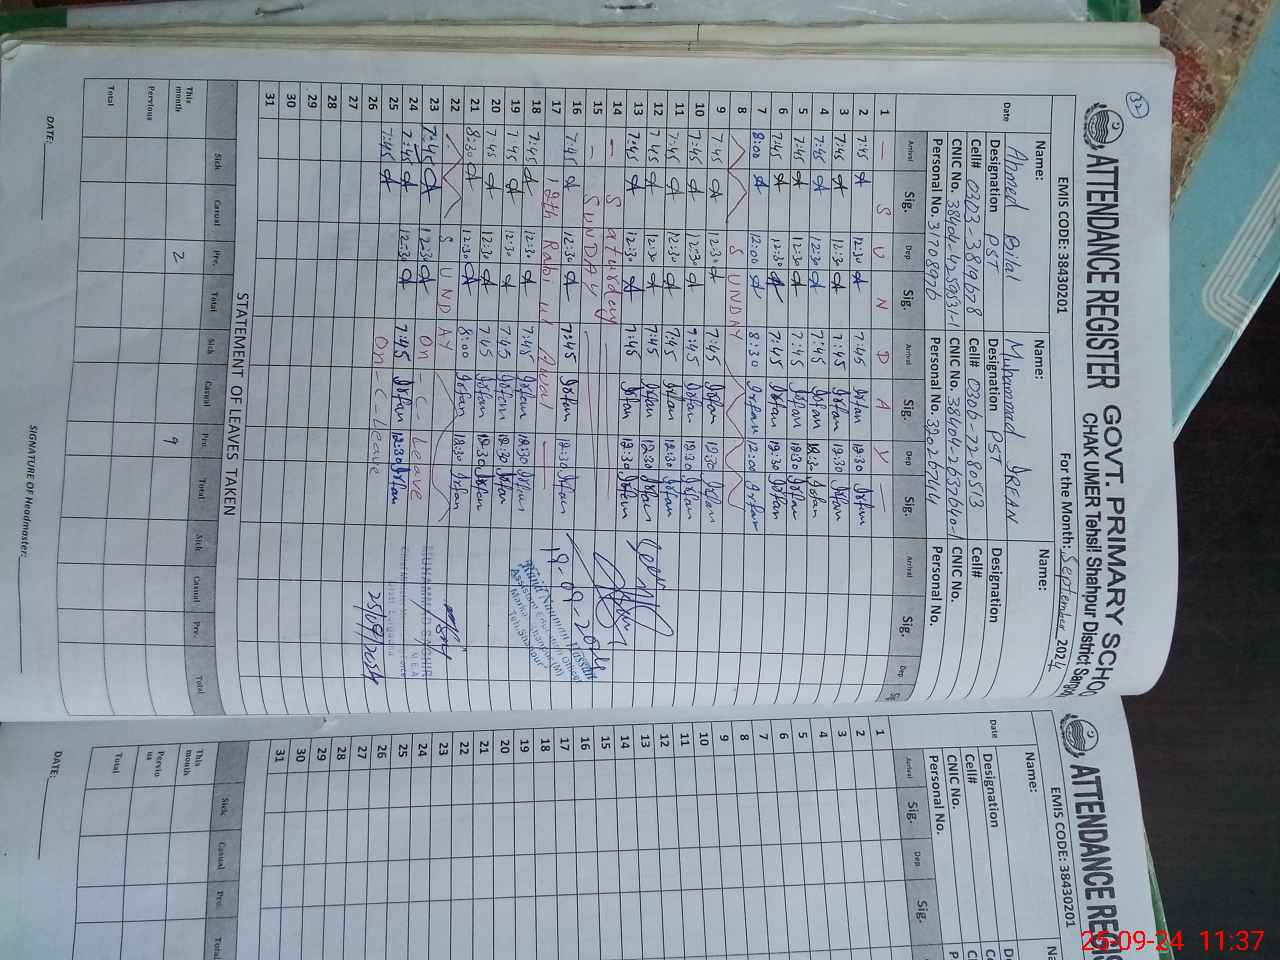 32
ATTENDANCE REGISTER GOVT. PRIMARY SCHO
CHAK UMER Tehsil Shahpur District Sargodh
EMIS CODE: 38430201 For the Month: September 2024
Name: Ahmed Bilal Name: Muhammad IRFAN Name:
Designation PST Designation PST Designation
Cell# 0303-3819678 Cell# 0306-7280513 Cell#
CNIC No. 38404-4259831-1 CNIC No. 38404-2637640-1 CNIC No.
Personal No. 31708976 Personal No. 32026744 Personal No.
Date Arrival Sig. Dep Sig. Arrival Sig. Dep Sig. Arrival Sig. Dep Sig
1 — S U N D A Y —
2 7:45 12:30 7:45 Irfan 12:30 Irfan
3 7:45 12:30 7:45 Irfan 12:30 Irfan
4 7:45 12:30 7:45 Irfan 12:30 Irfan
5 7:45 12:30 7:45 Irfan 12:30 Irfan
6 7:45 12:30 7:45 Irfan 12:30 Irfan
7 8:00 12:00 8:30 Irfan 12:00 Irfan
8 SUNDAY
9 7:45 12:30 7:45 Irfan 12:30 Irfan
10 7:45 12:30 7:45 Irfan 12:30 Irfan
11 7:45 12:30 7:45 Irfan 12:30 Irfan
12 7:45 12:30 7:45 Irfan 12:30 Irfan
13 7:45 12:30 7:45 Irfan 12:30 Irfan
14 — Saturday
15 — SUNDAY
16 7:45 12:30 7:45 Irfan 12:30 Irfan
17 12th Rabi ul Awal
18 7:45 12:30 7:45 Irfan 12:30 Irfan
19 7:45 12:30 7:45 Irfan 12:30 Irfan
20 7:45 12:30 7:45 Irfan 12:30 Irfan
21 8:30 12:30 8:00 Irfan 12:30 Irfan
22 SUNDAY
23 7:45 12:30 On - C. Leave
24 7:45 12:30 7:45 Irfan 12:30 Irfan
25 7:45 On - C - Leave
26
27
28
29
30
31
19-09-2024
Assistant Education Officer
25/09/2024
STATEMENT OF LEAVES TAKEN
Sick Casual Pre. Total Sick Casual Pre. Total Sick Casual Pre. Total
This month 2 9
Pervious
Total
DATE: SIGNATURE OF Headmaster:
ATTENDANCE REGIS
EMIS CODE: 38430201
Name:
Designation
Cell#
CNIC No.
Personal No.
Date Arrival Sig. Dep Sig.
1
2
3
4
5
6
7
8
9
10
11
12
13
14
15
16
17
18
19
20
21
22
23
24
25
26
27
28
29
30
31
Sick Casual Pre. Total
This month
Pervious
Total
DATE:
25-09-24 11:37